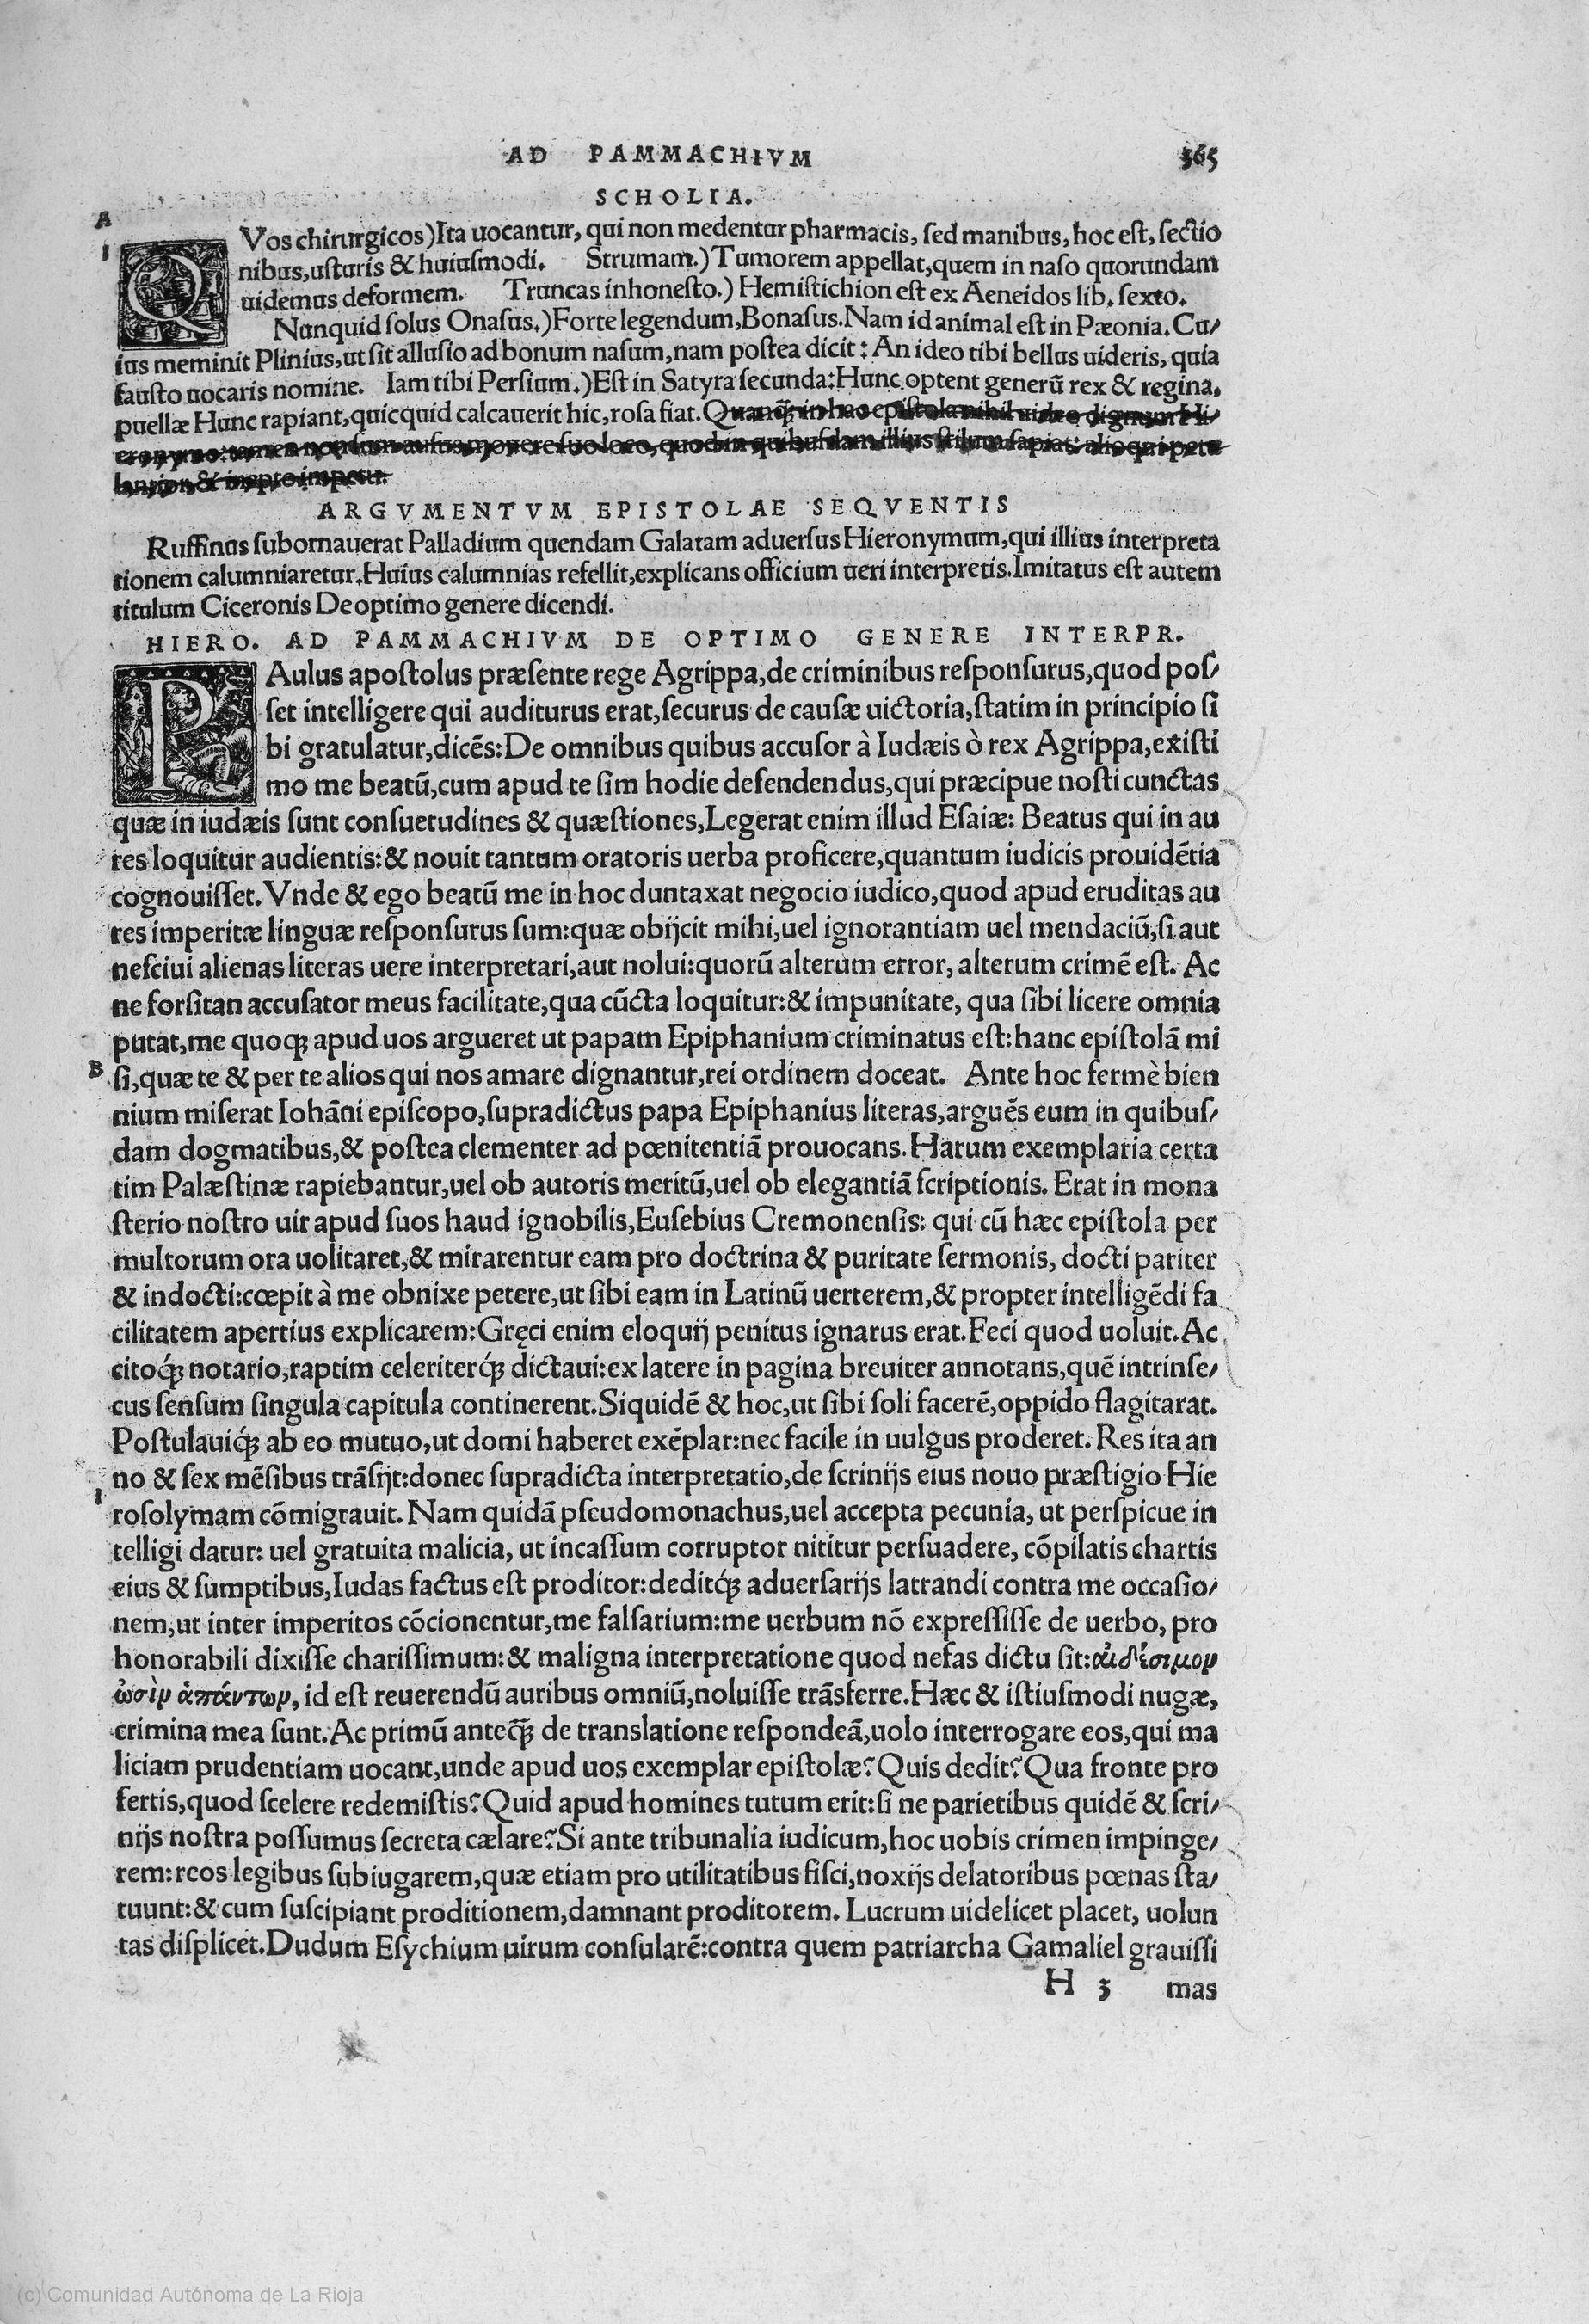 AD PAMMACHIVM 365
SCHOLIA.
A
1
QVos chirurgicos) Ita uocantur, qui non medentur pharmacis, sed manibus, hoc est, sectio
nibus, usturis & huiusmodi. Strumam.) Tumorem appellat, quem in naso quorundam
uidemus deformem. Truncas inhonesto.) Hemistichion est ex Aeneidos lib. sexto.
Nunquid solus Onasus.) Forte legendum, Bonasus. Nam id animal est in Pæonia. Cu/
ius meminit Plinius, ut sit allusio ad bonum nasum, nam postea dicit: An ideo tibi bellus uideris, quia
fausto uocaris nomine. Iam tibi Persium.) Est in Satyra secunda: Hunc optent generũ rex & regina,
puellæ Hunc rapiant, quicquid calcauerit hic, rosa fiat. Quanq̃ in hac epistola nihil uideo dignum Hi/
eronymo: tamen non sum ausus mouere suo loco, quod in quibusdam illius stilum sapiat: alioqui petu
lantior & inepto impetu.
ARGVMENTVM EPISTOLAE SEQVENTIS
Ruffinus subornauerat Palladium quendam Galatam aduersus Hieronymum, qui illius interpreta
tionem calumniaretur. Huius calumnias refellit, explicans officium ueri interpretis. Imitatus est autem
titulum Ciceronis De optimo genere dicendi.
HIERO. AD PAMMACHIVM DE OPTIMO GENERE INTERPR.
PAulus apostolus præsente rege Agrippa, de criminibus responsurus, quod pos/
set intelligere qui auditurus erat, securus de causæ uictoria, statim in principio si
bi gratulatur, dicẽs: De omnibus quibus accusor à Iudæis ò rex Agrippa, existi
mo me beatũ, cum apud te sim hodie defendendus, qui præcipue nosti cunctas
quæ in iudæis sunt consuetudines & quæstiones, Legerat enim illud Esaiæ: Beatus qui in au
res loquitur audientis: & nouit tantum oratoris uerba proficere, quantum iudicis prouidẽtia
cognouisset. Vnde & ego beatũ me in hoc duntaxat negocio iudico, quod apud eruditas au
res imperitæ linguæ responsurus sum: quæ obijcit mihi, uel ignorantiam uel mendaciũ, si aut
nesciui alienas literas uere interpretari, aut nolui: quorũ alterum error, alterum crimẽ est. Ac
ne forsitan accusator meus facilitate, qua cũcta loquitur: & impunitate, qua sibi licere omnia
putat, me quoq; apud uos argueret ut papam Epiphanium criminatus est: hanc epistolã mi
B si, quæ te & per te alios qui nos amare dignantur, rei ordinem doceat. Ante hoc fermè bien
nium miserat Iohãni episcopo, supradictus papa Epiphanius literas, arguẽs eum in quibus/
dam dogmatibus, & postea clementer ad pœnitentiã prouocans. Harum exemplaria certa
tim Palæstinæ rapiebantur, uel ob autoris meritũ, uel ob elegantiã scriptionis. Erat in mona
sterio nostro uir apud suos haud ignobilis, Eusebius Cremonensis: qui cũ hæc epistola per
multorum ora uolitaret, & mirarentur eam pro doctrina & puritate sermonis, docti pariter
& indocti: cœpit à me obnixe petere, ut sibi eam in Latinũ uerterem, & propter intelligẽdi fa
cilitatem apertius explicarem: Gręci enim eloquij penitus ignarus erat. Feci quod uoluit. Ac
citoq́; notario, raptim celeriterq́; dictaui: ex latere in pagina breuiter annotans, quẽ intrinse/
cus sensum singula capitula continerent. Siquidẽ & hoc, ut sibi soli facerẽ, oppido flagitarat.
Postulauiq́; ab eo mutuo, ut domi haberet exẽplar: nec facile in uulgus proderet. Res ita an
no & sex mẽsibus trãsijt: donec supradicta interpretatio, de scrinijs eius nouo præstigio Hie
1
rosolymam cõmigrauit. Nam quidã pseudomonachus, uel accepta pecunia, ut perspicue in
telligi datur: uel gratuita malicia, ut incassum corruptor nititur persuadere, cõpilatis chartis
eius & sumptibus, Iudas factus est proditor: deditq́; aduersarijs latrandi contra me occasio/
nem, ut inter imperitos cõcionentur, me falsarium: me uerbum nõ expressisse de uerbo, pro
honorabili dixisse charissimum: & maligna interpretatione quod nefas dictu sit: αἰδέσιμον
ὠσὶν ἁπάντων, id est reuerendũ auribus omniũ, noluisse trãsferre. Hæc & istiusmodi nugæ,
crimina mea sunt. Ac primũ anteq̃; de translatione respondeã, uolo interrogare eos, qui ma
liciam prudentiam uocant, unde apud uos exemplar epistolæ? Quis dedit? Qua fronte pro
fertis, quod scelere redemistis? Quid apud homines tutum erit: si ne parietibus quidẽ & scri/
nijs nostra possumus secreta cælare? Si ante tribunalia iudicum, hoc uobis crimen impinge/
rem: reos legibus subiugarem, quæ etiam pro utilitatibus fisci, noxijs delatoribus pœnas sta/
tuunt: & cum suscipiant proditionem, damnant proditorem. Lucrum uidelicet placet, uolun
tas displicet. Dudum Esychium uirum consularẽ: contra quem patriarcha Gamaliel grauissi
H 3 mas
(c) Comunidad Autónoma de La Rioja